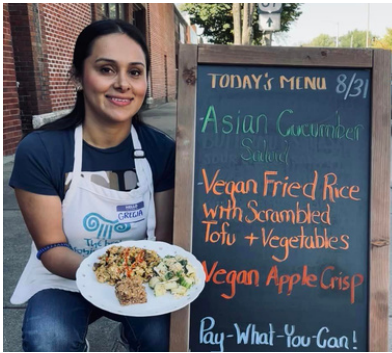 TODAY'S MENU 8/31
-Asian Cucumber
Salad
-Vegan Fried Rice
with Scrambled
Tofu + Vegetables
-Vegan Apple Crisp
Pay-What-You-Can!
HELLO
GRECIA